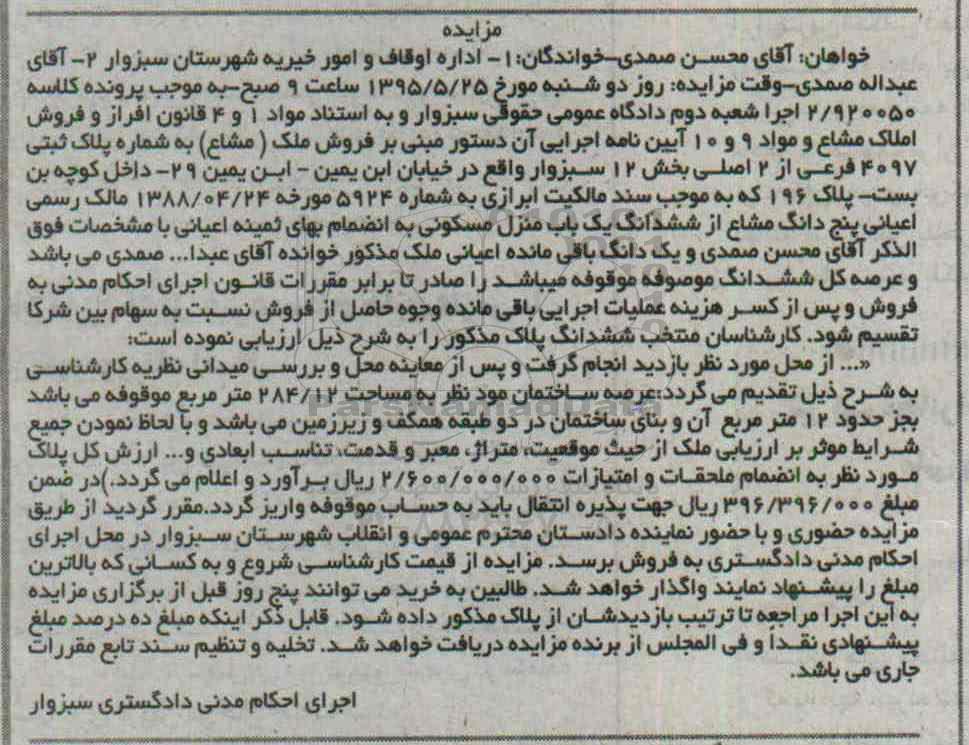 مزایده
خواهان: آقای محسن صمدی-خواندگان:۱- اداره اوقاف و امور خیریه شهرستان سبزوار ۲- آقای
عبداله صمدی-وقت مزایده: روز دو شنبه مورخ ۱۳۹۵/۵/۲۵ ساعت ۹ صبح-به موجب پرونده کلاسه
۲/۹۲۰۰۵۰ اجرا شعبه دوم دادگاه عمومی حقوقی سبزوار و به استناد مواد ۱ و ۴ قانون افراز و فروش
املاک مشاع و مواد ۹ و ۱۰ آیین نامه اجرایی آن دستور مبنی بر فروش ملک ( مشاع) به شماره پلاک ثبتی
۴۰۹۷ فرعی از ۲ اصلی بخش ۱۲ سبزوار واقع در خیابان ابن یمین - ابن یمین ۲۹- داخل کوچه بن
بست- پلاک ۱۹۶ که به موجب سند مالکیت ابرازی به شماره ۵۹۲۴ مورخه ۱۳۸۸/۰۴/۲۴ مالک رسمی
اعیانی پنج دانگ مشاع از ششدانگ یک باب منزل مسکونی به انضمام بهای ثمینه اعیانی با مشخصات فوق
الذکر آقای محسن صمدی و یک دانگ باقی مانده اعیانی ملک مذکور خوانده آقای عبدا... صمدی می باشد
و عرصه کل ششدانگ موصوفه موقوفه میباشد را صادر تا برابر مقررات قانون اجرای احکام مدنی به
فروش و پس از کسر هزینه عملیات اجرایی باقی مانده وجوه حاصل از فروش نسبت به سهام بین شرکا
تقسیم شود. کارشناسان منتخب ششدانگ پلاک مذکور را به شرح ذیل ارزیابی نموده است:
«... از محل مورد نظر بازدید انجام گرفت و پس از معاینه محل و بررسی میدانی نظریه کارشناسی
به شرح ذیل تقدیم می گردد:عرصه ساختمان مود نظر به مساحت ۲۸۴/۱۲ متر مربع موقوفه می باشد
بجز حدود ۱۲ متر مربع آن و بنای ساختمان در دو طبقه همکف و زیرزمین می باشد و با لحاظ نمودن جمیع
شرایط موثر بر ارزیابی ملک از حیث موقعیت، متراژ، معبر و قدمت، تناسب ابعادی و... ارزش کل پلاک
مورد نظر به انضمام ملحقات و امتیازات ۲/۶۰۰/۰۰۰/۰۰۰ ریال برآورد و اعلام می گردد.)در ضمن
مبلغ ۳۹۶/۳۹۶/۰۰۰ ریال جهت پذیره انتقال باید به حساب موقوفه واریز گردد.مقرر گردید از طریق
مزایده حضوری و با حضور نماینده دادستان محترم عمومی و انقلاب شهرستان سبزوار در محل اجرای
احکام مدنی دادگستری به فروش برسد. مزایده از قیمت کارشناسی شروع و به کسانی که بالاترین
مبلغ را پیشنهاد نمایند واگذار خواهد شد. طالبین به خرید می توانند پنج روز قبل از برگزاری مزایده
به این اجرا مراجعه تا ترتیب بازدیدشان از پلاک مذکور داده شود. قابل ذکر اینکه مبلغ ده درصد مبلغ
پیشنهادی نقداً و فی المجلس از برنده مزایده دریافت خواهد شد. تخلیه و تنظیم سند تابع مقررات
جاری می باشد.
اجرای احکام مدنی دادگستری سبزوار